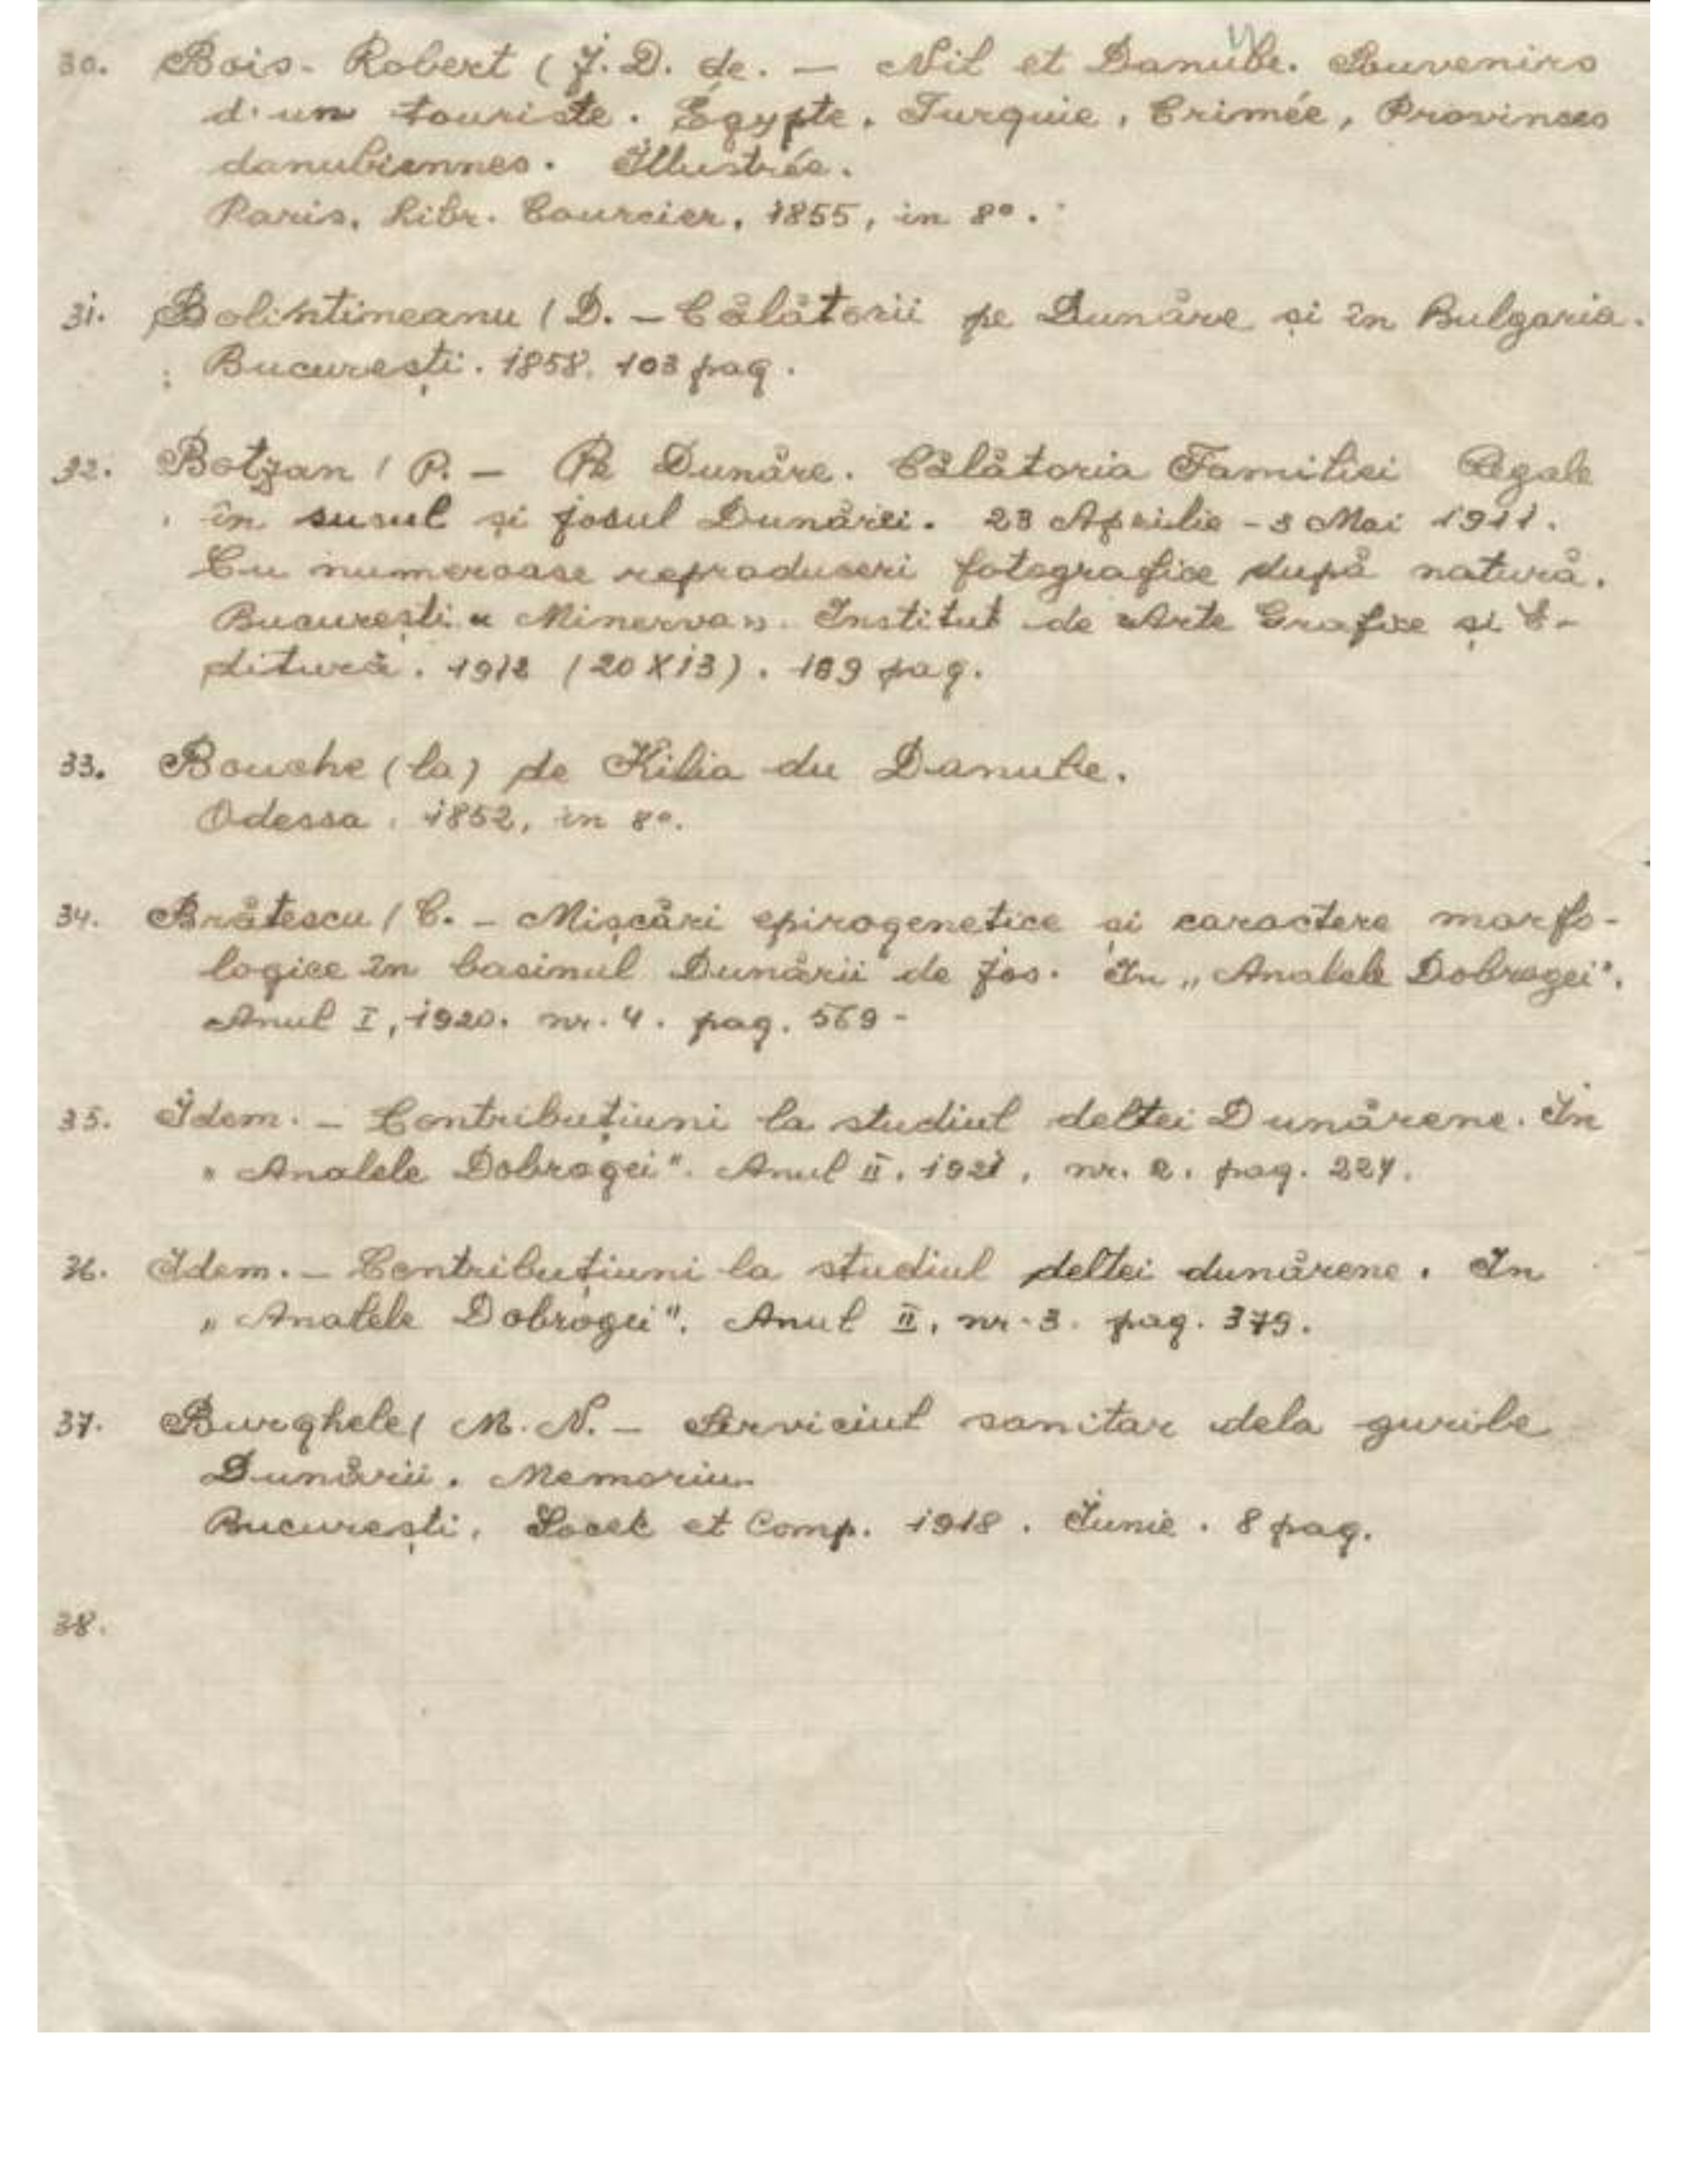 30. Bois-Robert (J. D. de. — Nil et Danube. Souvenirs
d'un touriste. Égypte, Turquie, Crimée, Provinces
danubiennes. Illustrée.
Paris, Libr. Courcier, 1855, in 8º.
31. Bolintineanu (D. — Călătorii pe Dunăre și în Bulgaria.
București. 1858. 103 pag.
32. Botzan (P. — Pe Dunăre. Călătoria Familiei Regale
în susul și josul Dunărei. 23 Aprilie - 3 Mai 1911.
Cu numeroase reproduceri fotografice după natură.
București « Minerva ». Institut de Arte Grafice și E-
ditură. 1912 (20X13). 189 pag.
33. Bouche (la) de Kilia du Danube.
Odessa. 1852, in 8º.
34. Brătescu (C. — Mișcări epirogenetice și caractere morfo-
logice în basinul Dunării de jos. In „Analele Dobrogei".
Anul I, 1920. nr. 4. pag. 569 -
35. Idem. — Contribuțiuni la studiul deltei Dunărene. In
„Analele Dobrogei". Anul II. 1921, nr. 2. pag. 227.
36. Idem. — Contribuțiuni la studiul deltei dunărene. In
„Analele Dobrogei". Anul II, nr. 3. pag. 379.
37. Burghele (M. N. — Serviciul sanitar dela gurile
Dunării. Memoriu.
București, Socek et Comp. 1918. Iunie. 8 pag.
38.